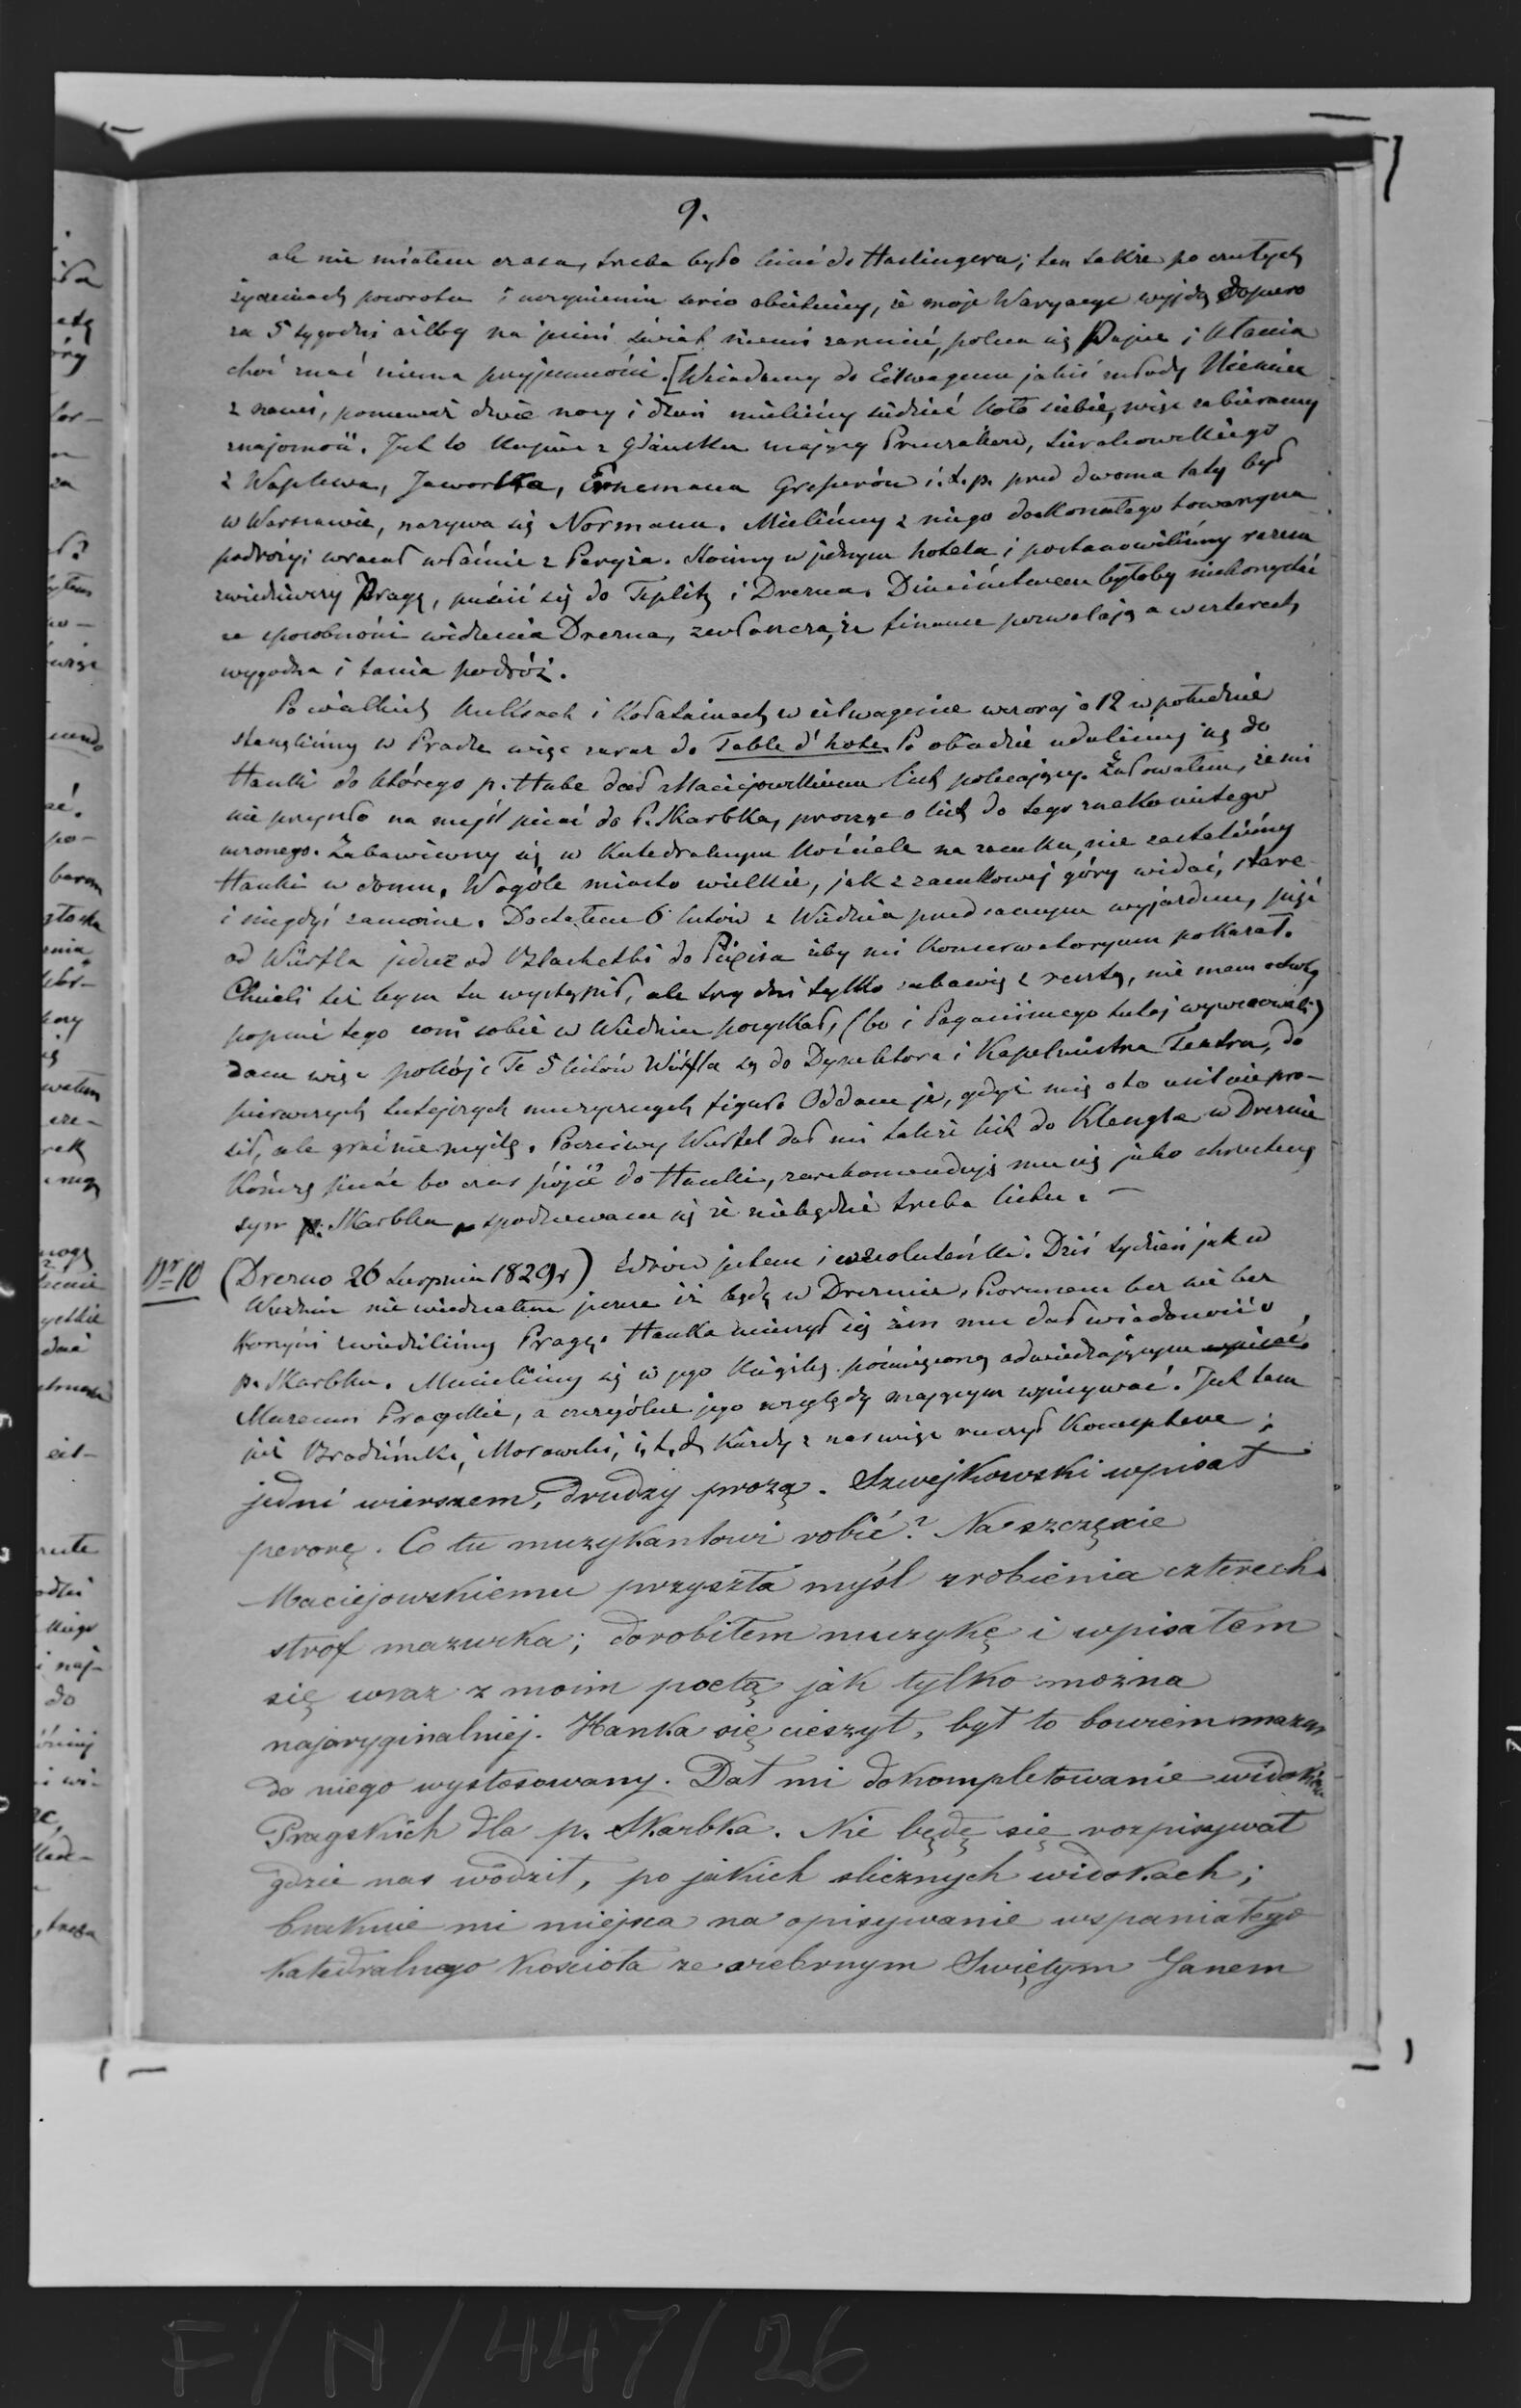 9.
ale nie miałem czasu, trzeba było lecieć do Haslingera; ten także po czułych
życzeniach powrotu i uczynieniu serio obietnicy, że moje Waryacye wyjdą dopiero
za 5 tygodni ażeby na jesień świat niemi zarzucić, poleca się Papie i kłania
choć znać niema przyjemności. [Wsiadamy do Eilwagenu jakiś młody Niemiec
z nami, ponieważ dwie nocy i dzień mieliśmy siedzieć koło siebie, więc zabieramy
znajomość. Był to kupiec z Gdańska znający Pruszaków, Sierakowskiego
z Waplewa, Jaworka, Ernemana Gresserów i t. p. przed dwoma laty był
w Warszawie, nazywa się Normann. Mieliśmy z niego doskonałego towarzysza
podróży; wracał właśnie z Paryża. Stoimy w jednym hotelu i postanowiliśmy razem
zwiedziwszy Pragę, puścić się do Teplitz i Drezna. Dzieciństwem byłoby niekorzystać
ze sposobności widzenia Drezna, zwłaszcza, że finanse pozwalają a w czterech
wygodna i tania podróż.
Po wielkich kuksach i kołataniach w eilwagenie wczoraj o 12 w południe
stanęliśmy w Pradze więc zaraz do Table d'hote. Po obiedzie udaliśmy się do
Hanki do którego p. Hube dał Maciejowskiemu list polecający. Żałowałem, że mi
nie przyszło na myśl pisać do P. Skarbka, prosząc o list do tego znakomitego
uczonego. Zabawiwszy się w Katedralnym kościele na zamku, nie zastaliśmy
Hanki w domu. Wogóle miasto wielkie, jak z zamkowej góry widać, stare
i niegdyś zamożne. Dostałem 6 listów z Wiednia przed samym wyjazdem, pięć
od Würfla jeden od Blachetki do Pixisa żeby mi Konserwatoryum pokazał.
Chcieli też bym tu wystąpił, ale trzy dni tylko zabawię z resztą, nie mam ochoty
popsuć tego com sobie w Wiedniu pozyskał, (bo i Paganiniego tutaj wypsioczyli)
dam więc pokój. Te 5 listów Würfla są do Dyrektora i Kapelmistra Teatru, do
pierwszych tutejszych muzycznych figur. Oddam je, gdyż mię o to usilnie pro-
sił, ale grać nie myślę. Poczciwy Würfel dał mi także list do Klengla w Dreznie
Kończę pisać bo czas pójść do Hanki, zarekomenduję mu się jako chrzestny
syn p. Skarbka, spodziewam się że niebędzie trzeba listu. —
Nr 10 (Drezno 26 Sierpnia 1829 r) Zdrów jestem i wesoluteńki. Dziś tydzień jak w
Wiedniu nie wiedziałem jeszcze iż będę w Dreznie. Piorunem bez nie bez
korzyści zwiedziliśmy Pragę. Hanka ucieszył się żem mu dał wiadomość o
p. Skarbku. Musieliśmy się w jego Księgę poświęconą odwiedzającym
Muzeum Pragskie, a szczególne jego względy mającym wpisywać. Jest tam
już Brodziński, Morawski, i, t, d, Każdy z nas więc ruszył konceptem;
jedni wierszem, drudzy prozą. Szwejkowski wpisał
perorę. Co tu muzykantowi robić? Na szczęście
Maciejowskiemu przyszła myśl zrobienia czterech
strof mazurka; dorobiłem muzykę i wpisałem
się wraz z moim poetą jak tylko można
najoryginalniej. Hanka się cieszył, był to bowiem mazur
do niego wystosowany. Dał mi dokompletowanie widoków
Pragskich dla p. Skarbka. Nie będę się rozpisywał
gdzie nas wodził, po jakich ślicznych widokach;
braknie mi miejsca na opisywanie wspaniałego
katedralnego kościoła ze srebrnym Świętym Janem
F/N/447/26